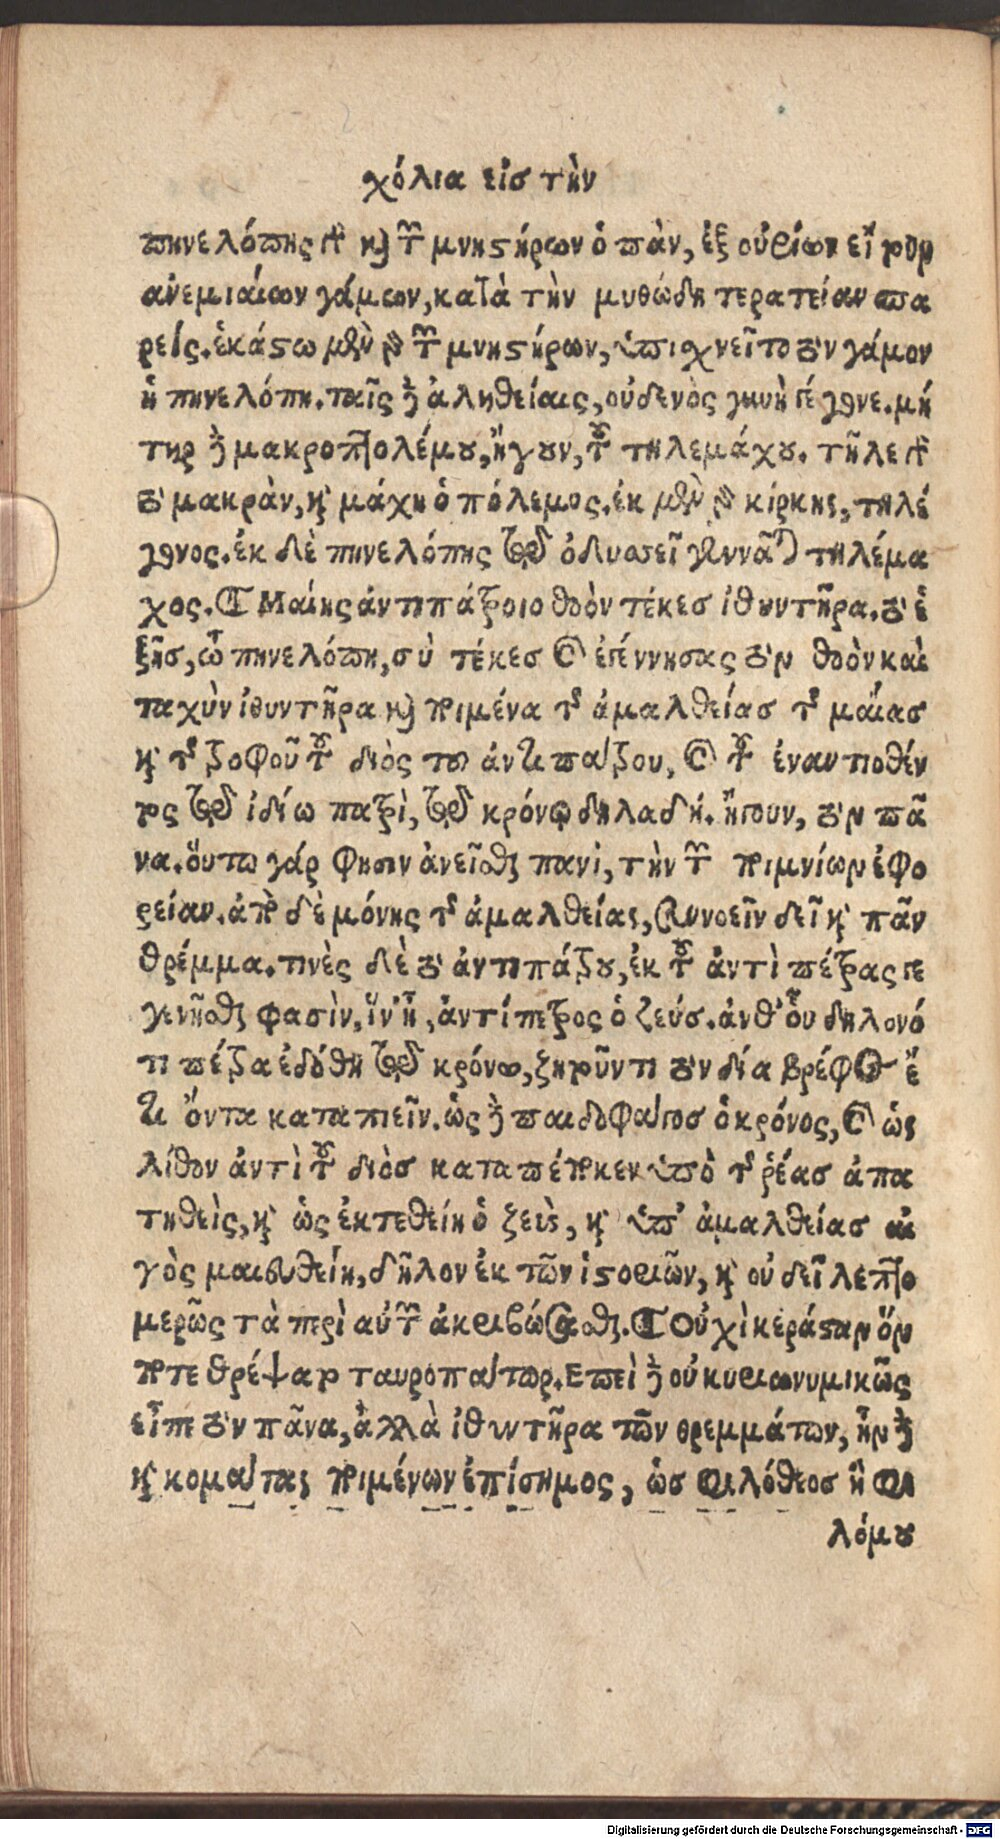 χόλια εἰς τὴν
πηνελόπης ἐστὶ καὶ τῶν μνηστήρων ὁ πὰν, ἐξ οὐρίων εἴτουν
ἀνεμιαίων γάμων, κατὰ τὴν μυθώδη τερατείαν πα
ρείς. ἑκάστω μὲν γὰρ τῶν μνηστήρων, ὑπισχνεῖτο τὸν γάμον
ἡ πηνελόπη. ταῖς δὲ ἀληθείαις, οὐδενὸς γυνὴ γέγονε. μή
τηρ δὲ μακροπτολέμου, ἤγουν, τοῦ τηλεμάχου. τῆλε ἐστὶ
τὸ μακρὰν, καὶ μάχη ὁ πόλεμος. ἐκ μὲν γὰρ κίρκης, τηλέ
γονος. ἐκ δὲ πινελόπης τῷ ὀδυσσεῖ γεννᾶται τηλέμα
χος. Μαίης ἀντιπάτροιο θοὸν τέκες ἰθυντῆρα. τὸ ἑ
ξῆς, ὦ πηνελόπη, σὺ τέκες καὶ ἐγέννησας τὸν θοὸν καὶ
ταχὺν ἰθυντῆρα καὶ ποιμένα τῆς ἀμαλθείας τῆς μαίας
καὶ τῆς τροφοῦ τοῦ διὸς του ἀντιπάτρου, καὶ τοῦ ἐναντιοθέν
τος τῷ ἰδίω πατρὶ, τῷ κρόνῳ δηλαδή. ἤγουν, τὸν πᾶ
να. ὅυτω γάρ φησιν ἀνεῖσθαι πανὶ, τὴν τῶν ποιμνίων ἐφο
ρείαν. ἀπὸ δὲ μόνης τῆς ἀμαλθείας, συννοεῖν δεῖ καὶ πᾶν
θρέμμα. τινὲς δὲ τὸ ἀντιπάτρου, ἐκ τοῦ ἀντὶ πέτρας γε
γενῆσθαι φασὶν, ἵν' ἦ, ἀντίπετρος ὁ ζεύς. ἀνθ' οὗ δηλονό
τι πέτρα ἐδόθη τῷ κρόνω, ζητοῦντι τὸν δία βρέφος ἔ
τι ὄντα καταπιεῖν. ὡς δὲ παιδοφάγος ὁ κρόνος, καὶ ὡς
λίθον ἀντὶ τοῦ διὸς καταπέπωκεν ὑπὸ τῆς ῥέας ἀπα
τηθεὶς, καὶ ὡς ἐκτεθείη ὁ ζεὺς, καὶ ὑπ' ἀμαλθείας αἰ
γὸς μαιευθείη, δῆλον ἐκ τῶν ἱστοριῶν, καὶ οὐ δεῖ λεπτο
μερῶς τὰ περὶ αὐτῶν ἀκριβώσασθαι. Οὐχὶ κεράσταν ὅν
ποτε θρέψατο ταυροπάτωρ. Επεὶ δὲ οὐ κυριωνυμικῶς
εἶπε τὸν πᾶνα, ἀλλὰ ἰθυντῆρα τῶν θρεμμάτων, ἦν δὲ
καὶ κομάτας ποιμένων ἐπίσημος, ὡς φιλόθεος ἢ φι
λόμου